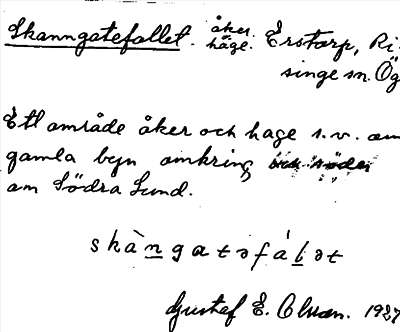 Skanngatefallet. åker. häge. Erstorp, Ri-
singe sn. Ög
Ett område åker och hage s.v. om
gamla byn omkring
om Södra Lund.
skàn̲gatəfál̲ət
Gustaf E. 1927